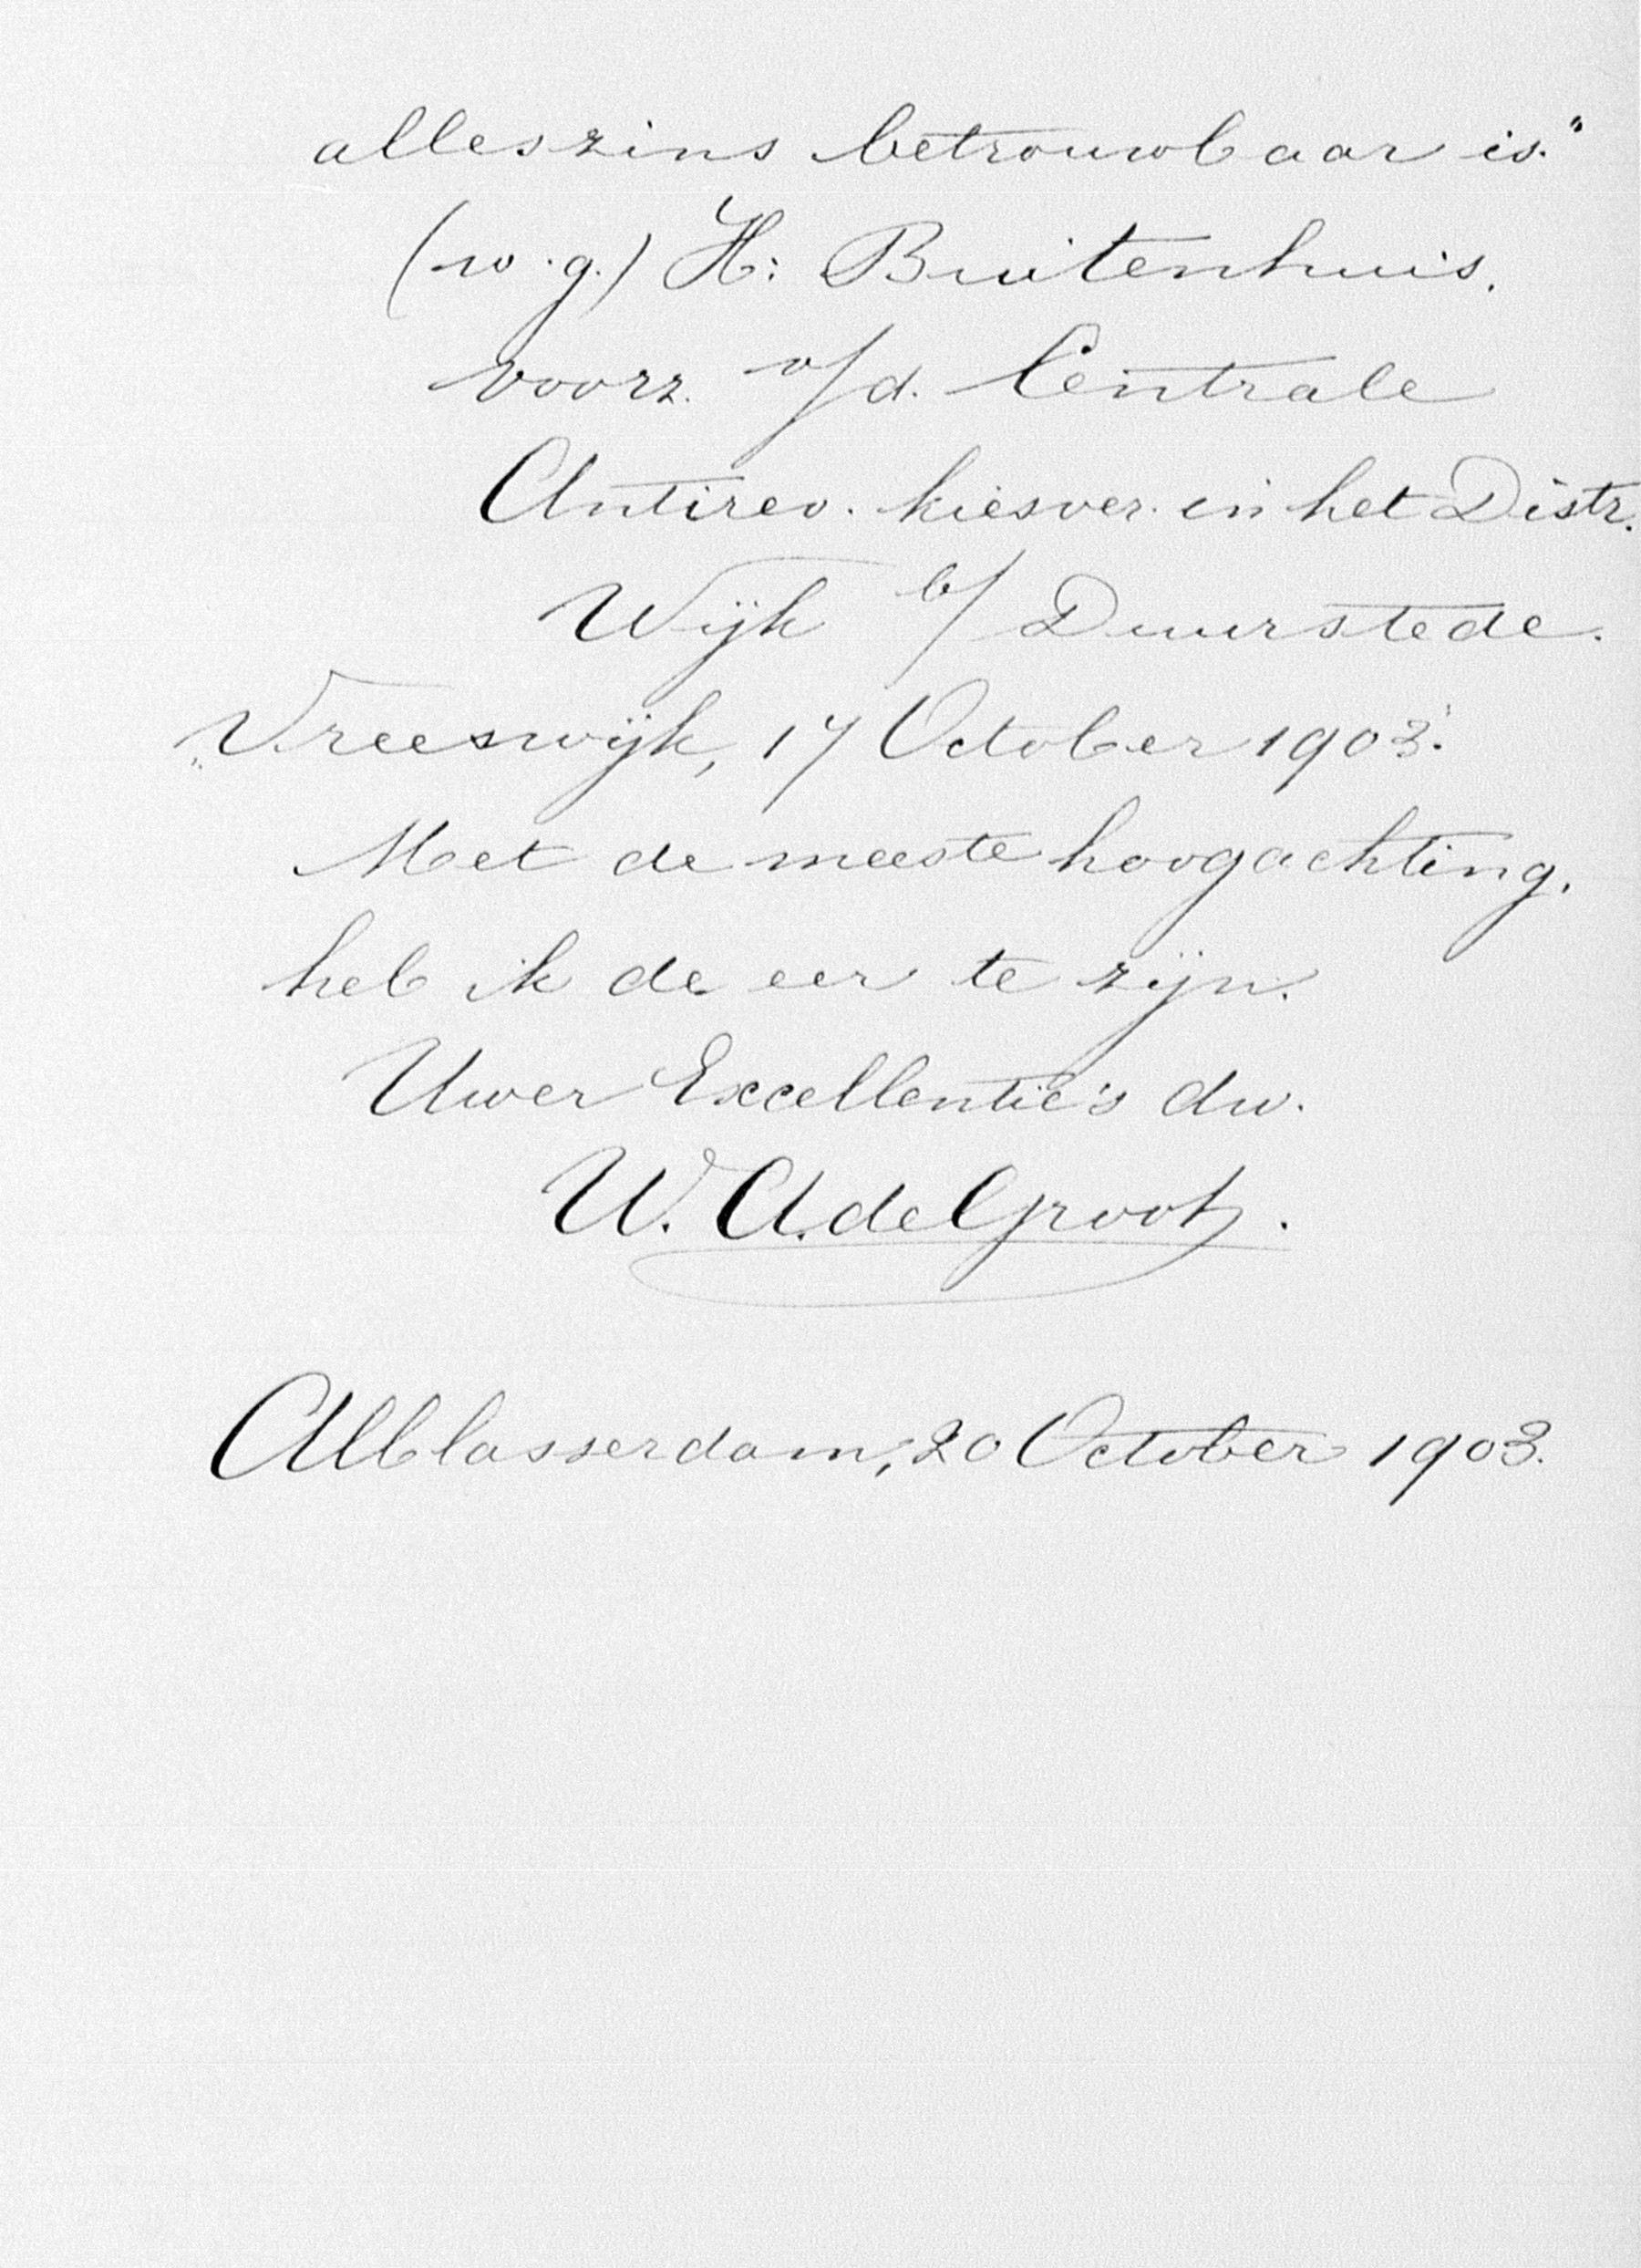 alleszins betrouwbaar is."
(w.g.) H: Buitenhuis.
voorz. v/d. Centrale
Antirev. kiesver. in het Distr.
Wijk b/ Duurstede.
„Vreeswijk, 17 October 1903.
Met de meeste hoogachting,
heb ik de eer te zijn.
Uwer Excellentie's dw.
W. A. de Groot.
Alblasserdam, 20 October 1903.